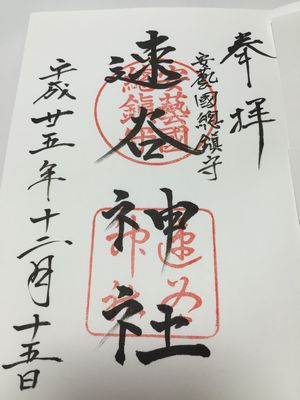 奉拝
安藝國總鎮守
速谷神社
平成廿五年十二月十五日
安藝國
總鎮守
速谷
神社